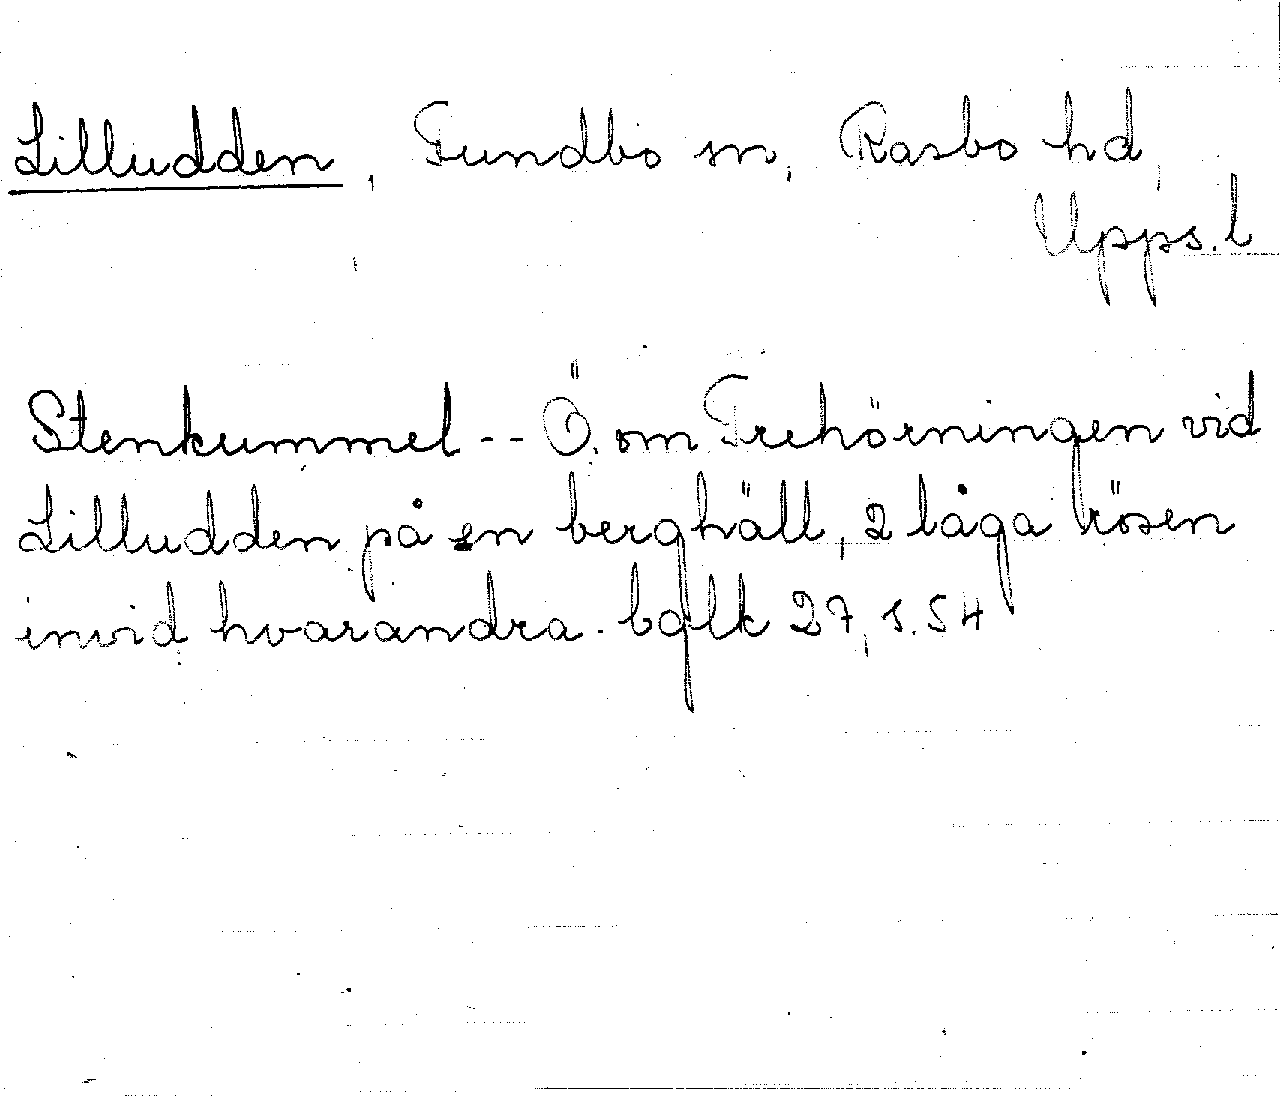 Lilludden, Tundbo sn, Rasbo hd,
Upps. l
Stenkummel -- Ö. om Trehörningen vid
Lilludden på en berghäll, 2 låga rösen
invid hvarandra. bglk 27, s. 54